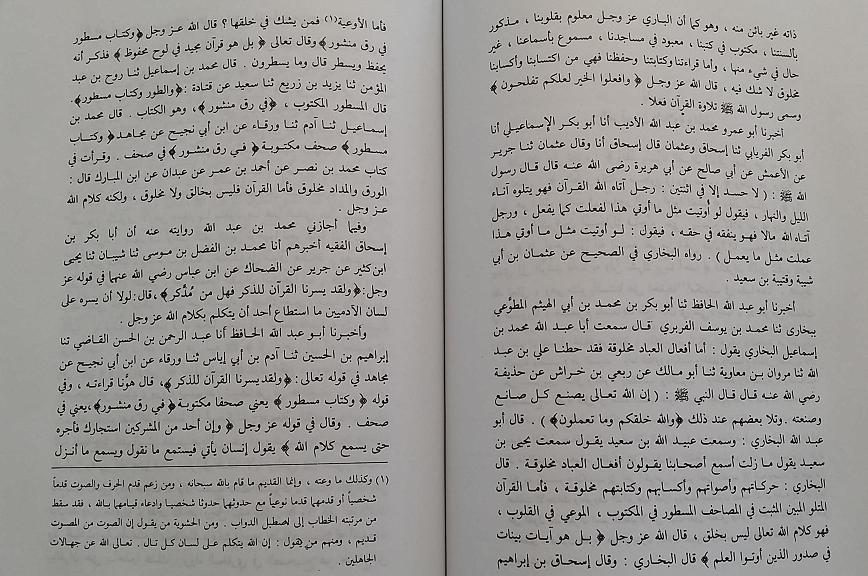 ذاته غير بائن منه ، وهو كما أن الباري عز وجل معلوم بقلوبنا ، مذكور
بألسنتنا ، مكتوب في كتبنا ، معبود في مساجدنا ، مسموع بأسماعنا ، غير
حال في شيء منها ، وأما قراءتنا وكتابتنا وحفظنا فهي من اكتسابنا وأكسابنا
مخلوق لا شك فيه ، قال الله عز وجل ﴿ وافعلوا الخير لعلكم تفلحون ﴾
وسمى رسول الله ﷺ تلاوة القرآن فعلا .
أخبرنا أبو عمرو محمد بن عبد الله الأديب أنا أبو بكر الإسماعيلي أنا
أبو بكر الفريابي ثنا إسحاق وعثمان قال إسحاق أنا وقال عثمان ثنا جرير
عن الأعمش عن أبي صالح عن أبي هريرة رضى الله عنه قال قال رسول
الله ﷺ : ( لا حسد إلا في اثنتين : رجل آتاه الله القرآن فهو يتلوه آناء
الليل والنهار ، فيقول لو أوتيت مثل ما أوتي هذا لفعلت كما يفعل ، ورجل
آتاه الله مالا فهو ينفقه في حقه ، فيقول : لو أوتيت مثل ما أوتي هذا
عملت مثل ما يعمل ) . رواه البخاري في الصحيح عن عثمان بن أبي
شيبة وقتيبة بن سعيد .
أخبرنا أبو عبد الله الحافظ ثنا أبو بكر بن محمد بن أبي الهيثم المطوّعي
ببخارى ثنا محمد بن يوسف الفربري قال سمعت أبا عبد الله محمد بن
إسماعيل البخاري يقول : أما أفعال العباد مخلوقة فقد حطنا علي بن عبد
الله ثنا مروان بن معاوية ثنا أبو مالك عن ربعي بن خراش عن حذيفة
رضي الله عنه قال قال النبي ﷺ : ( إن الله تعالى يصنع كل صانع
وصنعته .وتلا بعضهم عند ذلك ﴿والله خلقكم وما تعملون﴾ ) . قال أبو
عبد الله البخاري : وسمعت عبيد الله بن سعيد يقول سمعت يحيى بن
سعيد يقول ما زلت أسمع أصحابنا يقولون أفعال العباد مخلوقة . قال
البخاري : حركاتهم وأصواتهم وأكسابهم وكتابتهم مخلوقة ، فأما القرآن
المتلو المبين المثبت في المصاحف المسطور في المكتوب ، الموعي في القلوب ،
فهو كلام الله تعالى ليس بخلق ، قال الله عز وجل ﴿ بل هو آيات بينات
في صدور الذين أوتوا العلم ﴾ قال البخاري : وقال إسحاق بن إبراهيم
فأما الأوعية(١) فمن يشك في خلقها ؟ قال الله عز وجل ﴿وكتاب مسطور
في رق منشور﴾ وقال تعالى ﴿ بل هو قرآن مجيد في لوح محفوظ ﴾ فذكر أنه
يحفظ ويسطر قال وما يسطرون . قال محمد بن إسماعيل ثنا روح بن عبد
المؤمن ثنا يزيد بن زريع ثنا سعيد عن قتادة :﴿والطور وكتاب مسطور﴾.
قال المسطور المكتوب ، ﴿في رق منشور﴾، وهو الكتاب . قال محمد بن
إسماعيل ثنا آدم ثنا ورقاء عن ابن أبي نجيح عن مجاهد ﴿ وكتاب
مسطور﴾ صحف مكتوبة ﴿ في رق منشور﴾ في صحف . وقرأت في
كتاب محمد بن نصر عن أحمد بن عمر عن عبدان عن ابن المبارك قال :
الورق والمداد مخلوق فأما القرآن فليس بخالق ولا مخلوق ، ولكنه كلام الله
عز وجل .
وفيما أجازني محمد بن عبد الله روايته عنه أن أبا بكر بن
إسحاق الفقيه أخبرهم أنا محمد بن الفضل بن موسى ثنا شيبان ثنا يحيى
ابن كثير عن جرير عن الضحاك عن ابن عباس رضي الله عنهما في قوله عز
وجل:﴿ولقد يسرنا القرآن للذكر فهل من مُدَّكر﴾،قال:لولا أن يسره على
لسان الآدميين ما استطاع أحد أن يتكلم بكلام الله عز وجل .
وأخبرنا أبو عبد الله الحافظ أنا عبد الرحمن بن الحسن القاضي ثنا
إبراهيم بن الحسين ثنا آدم بن أبي إياس ثنا ورقاء عن ابن أبي نجيح عن
مجاهد في قوله تعالى: ﴿ولقد يسرنا القرآن للذكر﴾، قال هوَّنا قراءته ، وفي
قوله ﴿ وكتاب مسطور ﴾ يعني صحفا مكتوبة﴿ في رق منشور﴾،يعني في
صحف . وقال في قوله عز وجل ﴿ وإن أحد من المشركين استجارك فأجره
حتى يسمع كلام الله ﴾ يقول إنسان يأتي فيستمع ما نقول ويسمع ما أنزل
(١) وكذلك ما وعته ، وإنما القديم ما قام بالله سبحانه ، ومن زعم قدم الحرف والصوت قدماً
شخصياً أو قدمهما قدماً نوعياً مع حدوثهما حدوثا شخصيا وادعاء قيامهما بالله ، فقد سقط
من مرتبته الخطاب إلى اصطبل الدواب . ومن الحشوية من يقول إن الصوت من المصوت
قديم ، ومنهم من يقول : إن الله يتكلم على لسان كل تال . تعالى الله عن جهالات
الجاهلين .